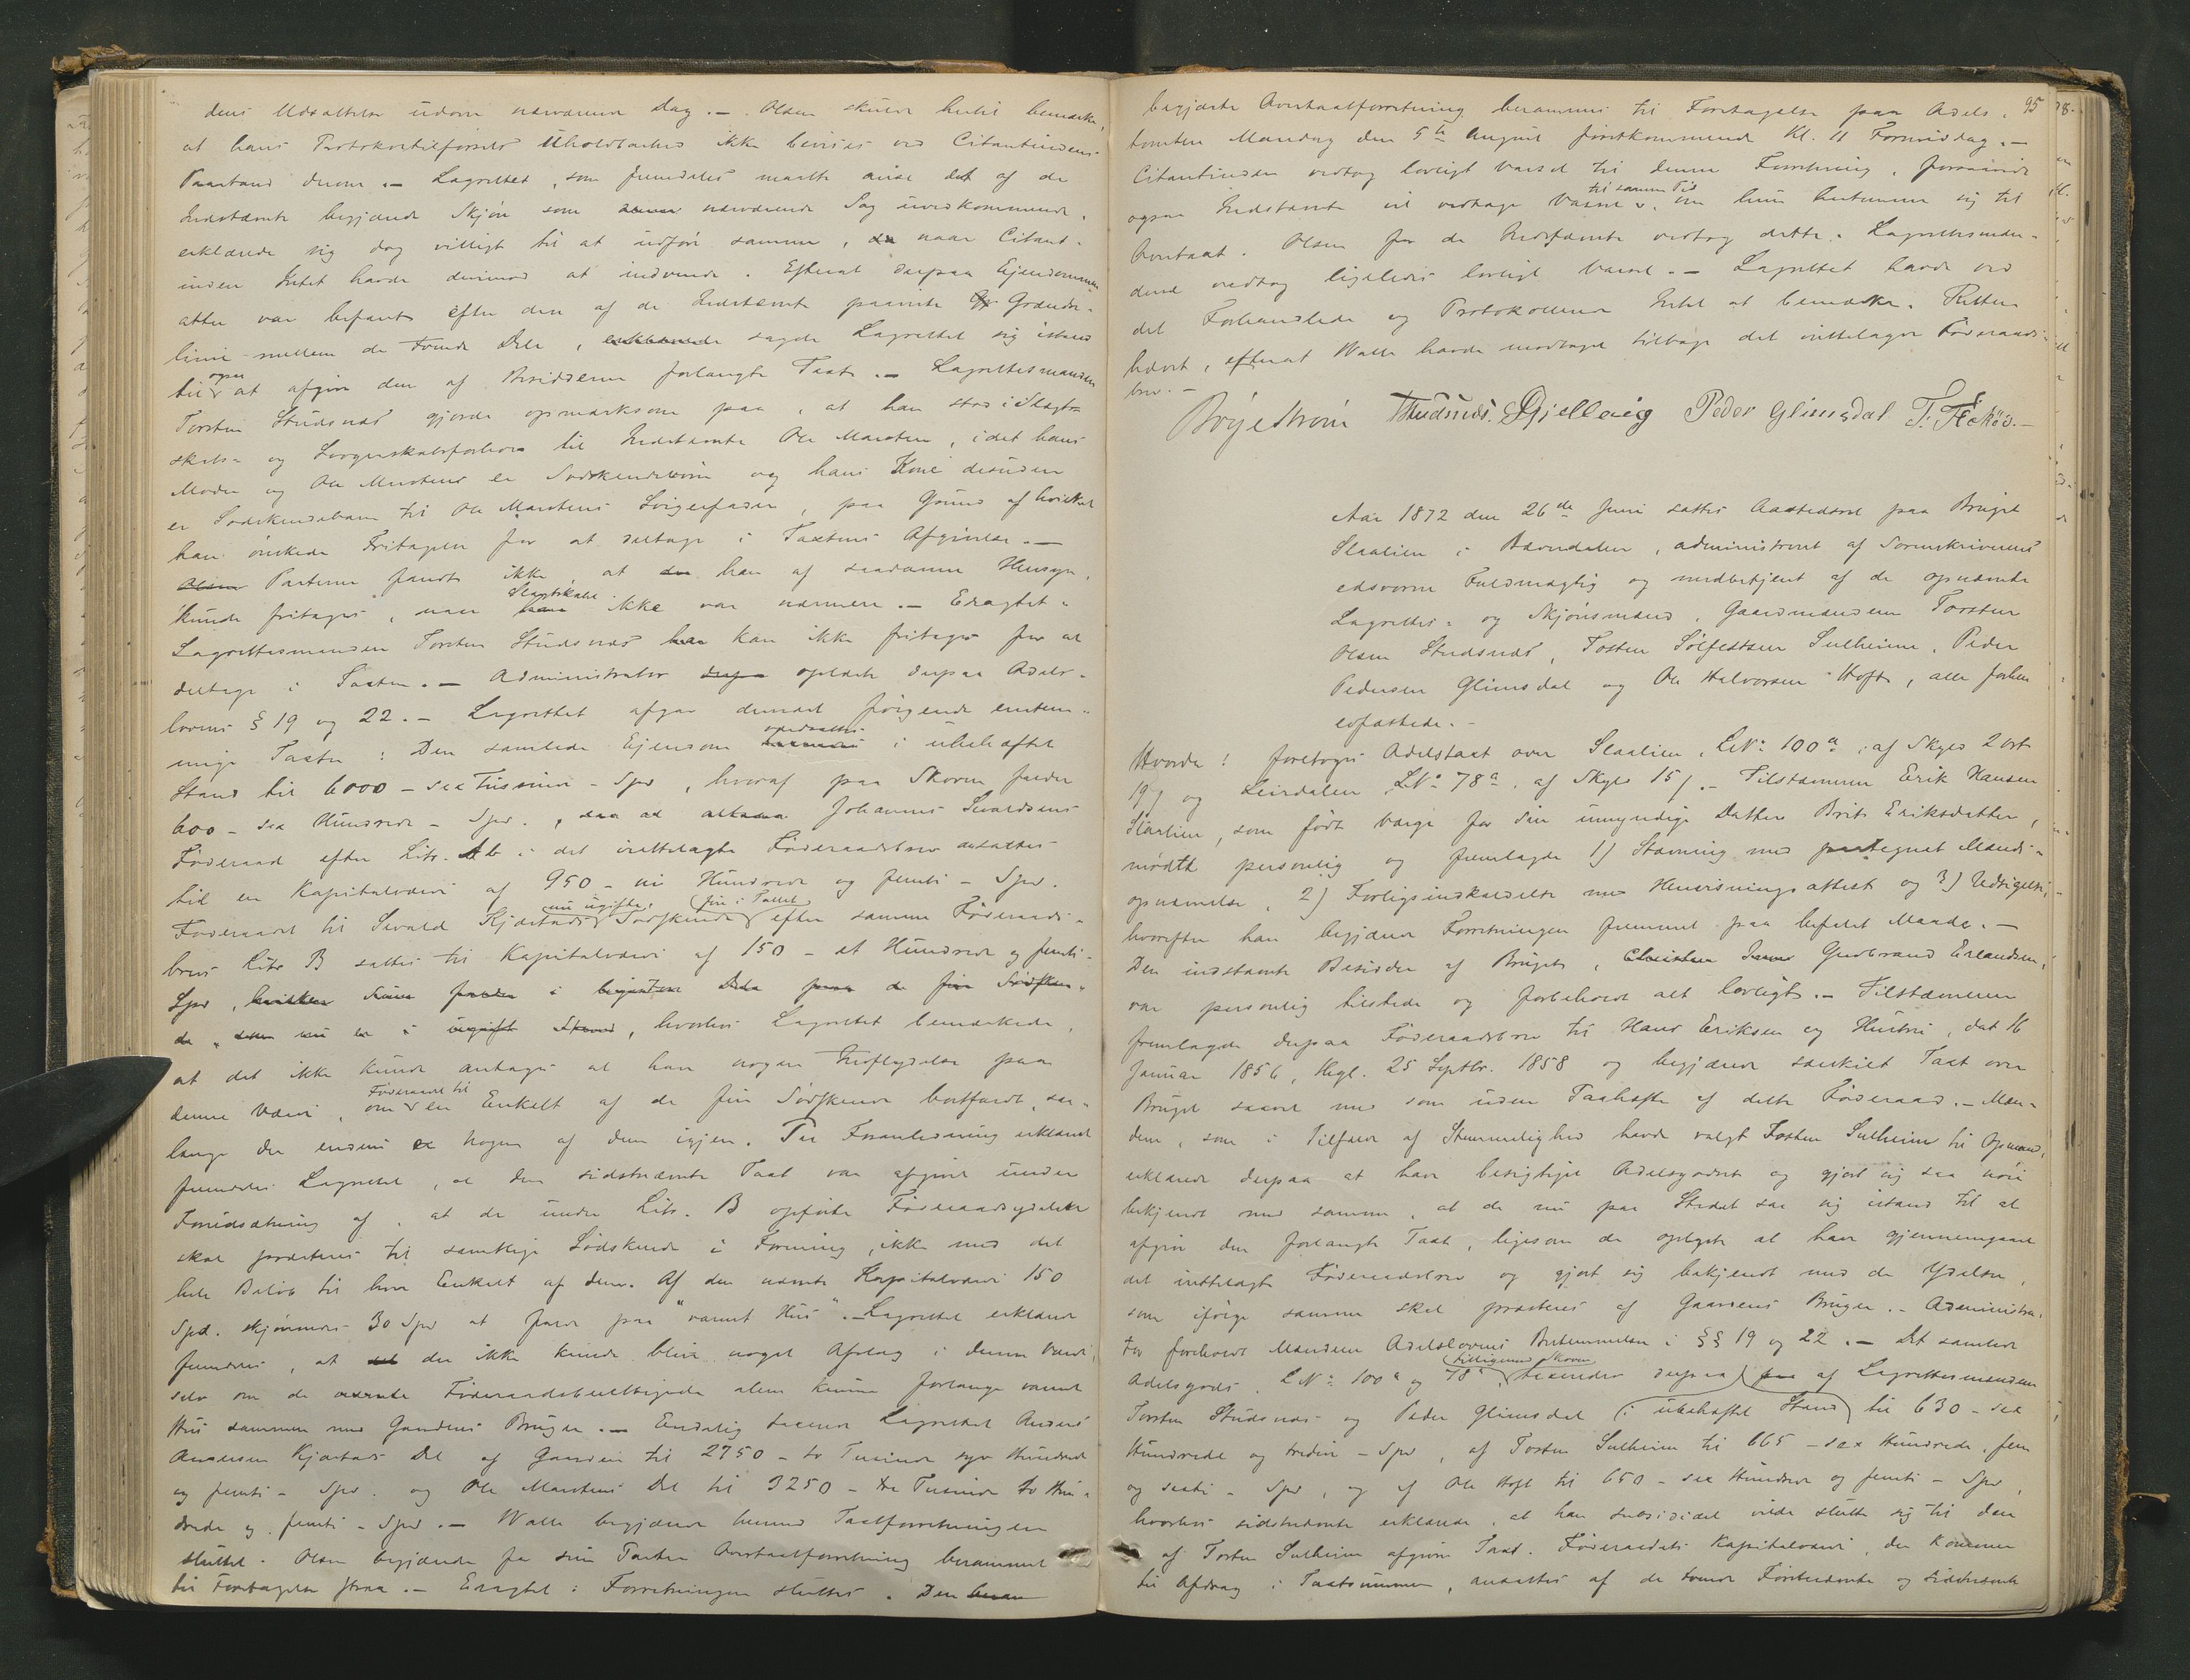 dens Udsættelse udover nærværende Dag. — Olsen skulde hertil bemærke,
at hans Protokoltilførsels Uholdbarhed ikke bevises ved Citantindens
Paastand derom. — Lagrettet, som fremdeles maatte anse det af de
Indstævnte begjærede Skjøn som denne nærværende Sag uvedkommende,
erklærede sig dog villigt til at udføre samme, da naar Citant-
inden Intet havde derimod at indvende. Efterat derpaa Ejendommen
atter var befaret efter den af de Indstævnte paaviste Gr Grændse-
linie mellem de tvende Dele, erklærede sagde Lagrettet sig istand
til ogsaa at afgive den af Besidderne forlangte Taxt. — Lagrettesmanden
Torsten Studsnæs gjorde opmærksom paa, at han stod i Slægt-
skabs- og Svogerskabsforhold til Indstævnte Ole Marsten, idet hans
Moder og Ole Marstens er Sødskendebørn og hans Kone desuden
er Sødskendebarn til Ole Marstens Svigerfader, paa Grund af hvilket
han ønskede Fritagelse for at deltage i Taxtens Afgivelse. —
Olsen Parterne fandt ikke, at den han af saadanne Hensyn,
kunde fritages, naar han Slægtskabet ikke var nærmere. — Eragtet:
Lagrettesmanden Torsten Studsnæs har kan ikke fritages for at
deltage i Taxten. — Administrator derpaa oplæste derpaa Odels-
lovens § 19 og 22. — Lagrettet afgav dernæst følgende enstem-
mige Taxter: Den samlede Ejendom ansattes i ubeheftet
Stand til 6000 – sex Tusinde – Spd, hvoraf paa Skoven falder
600 – sex Hundrede – Spd., saa at Johannes Sevaldsens
Føderaad efter Litr. A i det irettelagte Føderaadsbrev ansattes
til en Kapitalværdi af 950 – ni Hundrede og femti – Spd.
Føderaadet til Sevald Kjæstads nu ugifte, fem i Tallet Sødskende efter samme Føderaads-
brevs Litr B sattes til Kapitalværdi af 150 – et Hundrede og femti –
Spd, i de fem Sødsken-
de, som nu er i ugift Stand, hvorhos Lagrettet bemærkede,
at det ikke kunde antages at have nogen Indflydelse paa
denne Værdi, om Føderaadet til en Enkelt af de fem Sødskende bortfaldt, saa-
længe der endnu er nogen af dem igjen. Paa Foranledning erklærede
fremdeles Lagrettet, at den sidstnævnte Taxt var afgivet under
Forudsætning af, at de under Litr. B opførte Føderaadsydelser
skal præsteres til samtlige Sødskende i Forening, ikke med det
hele Beløb til hver Enkelt af dem. Af den nævnte Kapitalværdi 150
Spd. skjønnedes 30 Spd at falde paa "varmt Hus". — Lagrettet erklærede
fremdeles, at det der ikke kunde blive noget Afslag i denne Værdi,
selv om de nævnte Føderaadsberettigede alene kunne forlange varmt
Hus sammen med Gaardens Bruger. — Endelig taxerede Lagrettet Anders
Andersen Kjæstads Del af Gaarden til 2750 – to Tusinde syv Hundrede
og femti – Spd. og Ole Marstens Del til 3250 – tre Tusinde to Hun-
drede og femti – Spd. — Walle begjærede hermed Taxtforretningen
sluttet. Olsen begjærede for sine Parter Overtaxtforretning berammet
til Foretagelse strax. — Eragtet: Forretningen sluttes. Den beram
95
begjærte Overtaxtforretning berammes til Foretagelse paa Odels-
tomten Mandag den 5te August førstkommende Kl. 11 Formiddag. —
Citantinden vedtog lovligt Varsel til denne Forretning, forsaavidt
ogsaa Indstævnte vil vedtage Varsel til samme Tid, om hun bestemmer sig til
Overtaxt. Olsen for de Indstævnte vedtog dette. Lagrettesmæn-
dene vedtog ligeledes lovligt Varsel. — Lagrettet havde ved
det Forhandlede og Protokollen Intet at bemærke. Retten
hævet, efterat Walle havde modtaget tilbage det irettelagte Føderaads-
brev. —
Peder Glimsdal
Aar 1872 den 26de Juni sattes Aastedsret paa Bruget
Slaalien i Hævndalen, administreret af Sorenskriverens
edsvorne Fuldmægtig og medbetjent af de opnævnte
Lagrettes- og Skjønsmænd, Gaardmændene Torsten
Olsen Studsnæs, Tosten Sølfestsen Sulheim, Peder
Pedersen Glimsdal og Ole Halvorsen Hoft, alle forhen
edfæstede. —
Hvorda! foretoges Odelstaxt over Slaalien, L.№ 100a, af Skyld 2 ort
19 ẞ og Leirdalen L.№ 78a, af Skyld 15 ẞ. — Tilstævneren Erik Hansen
Slaalien, som født Værge for sin umyndige Datter Brit Eriksdatter,
mødte personlig og fremlagde 1) Stævning med paategnet Mands-
opnævnelse, 2) Forligsindkaldelse med Henvisningsattest og 3) Udsigelse,
hvorefter han begjærede Forretningen fremmet paa befalet Maade. —
Den indstævnte Besidder af Bruget, Gudbrand Erlandsen,
var personlig tilstede og forbeholdt alt lovligt. — Tilstævneren
fremlagde derpaa Føderaadsbrev til Hans Eriksen og Hustru, dat 16
Januar 1856, thgl. 25 Septbr. 1858 og begjærede særskilt Taxt over
Bruget saavel med som uden Paahefte af dette Føderaad. — Mæn-
dene, som i Tilfælde af Stemmelighed havde valgt Tosten Sulheim til Opmand,
erklærede derpaa at have besigtiget Odelsgodset og gjort sig saa nøie
bekjendt med samme, at de nu paa Stedet saa sig istand til at
afgive den forlangte Taxt, ligesom de oplyste at have gjennemgaaet
det irettelagte Føderaadsbrev og gjort sig bekjendt med de Ydelser,
som ifølge samme skal præsteres af Gaardens Bruger. — Administra-
tor foreholdt Mændene Odelslovens Bestemmelser i §§ 19 og 22. — Det samlede
Odelsgods, L.№ 100a og 78a tilligemed Skoven, taxeredes derpaa af Lagrettesmændene
Torsten Studsnæs og Peder Glimsdal (i ubeheftet Stand) til 630 – sex
Hundrede og tredive – Spd, af Tosten Sulheim til 665 – sex Hundrede, fem
og sexti – Spd, og af Ole Hoft til 650 – sex Hundrede og femti – Spd,
hvorhos sidstnævnte erklærede, at han subsidiært vilde slutte sig til den
af Tosten Sulheim afgivne Taxt. Føderaadets Kapitalværdi, der kommer
til Afdrag i Taxtsummen, ansattes af de tvende Førstnævnte og Sidstnævnte